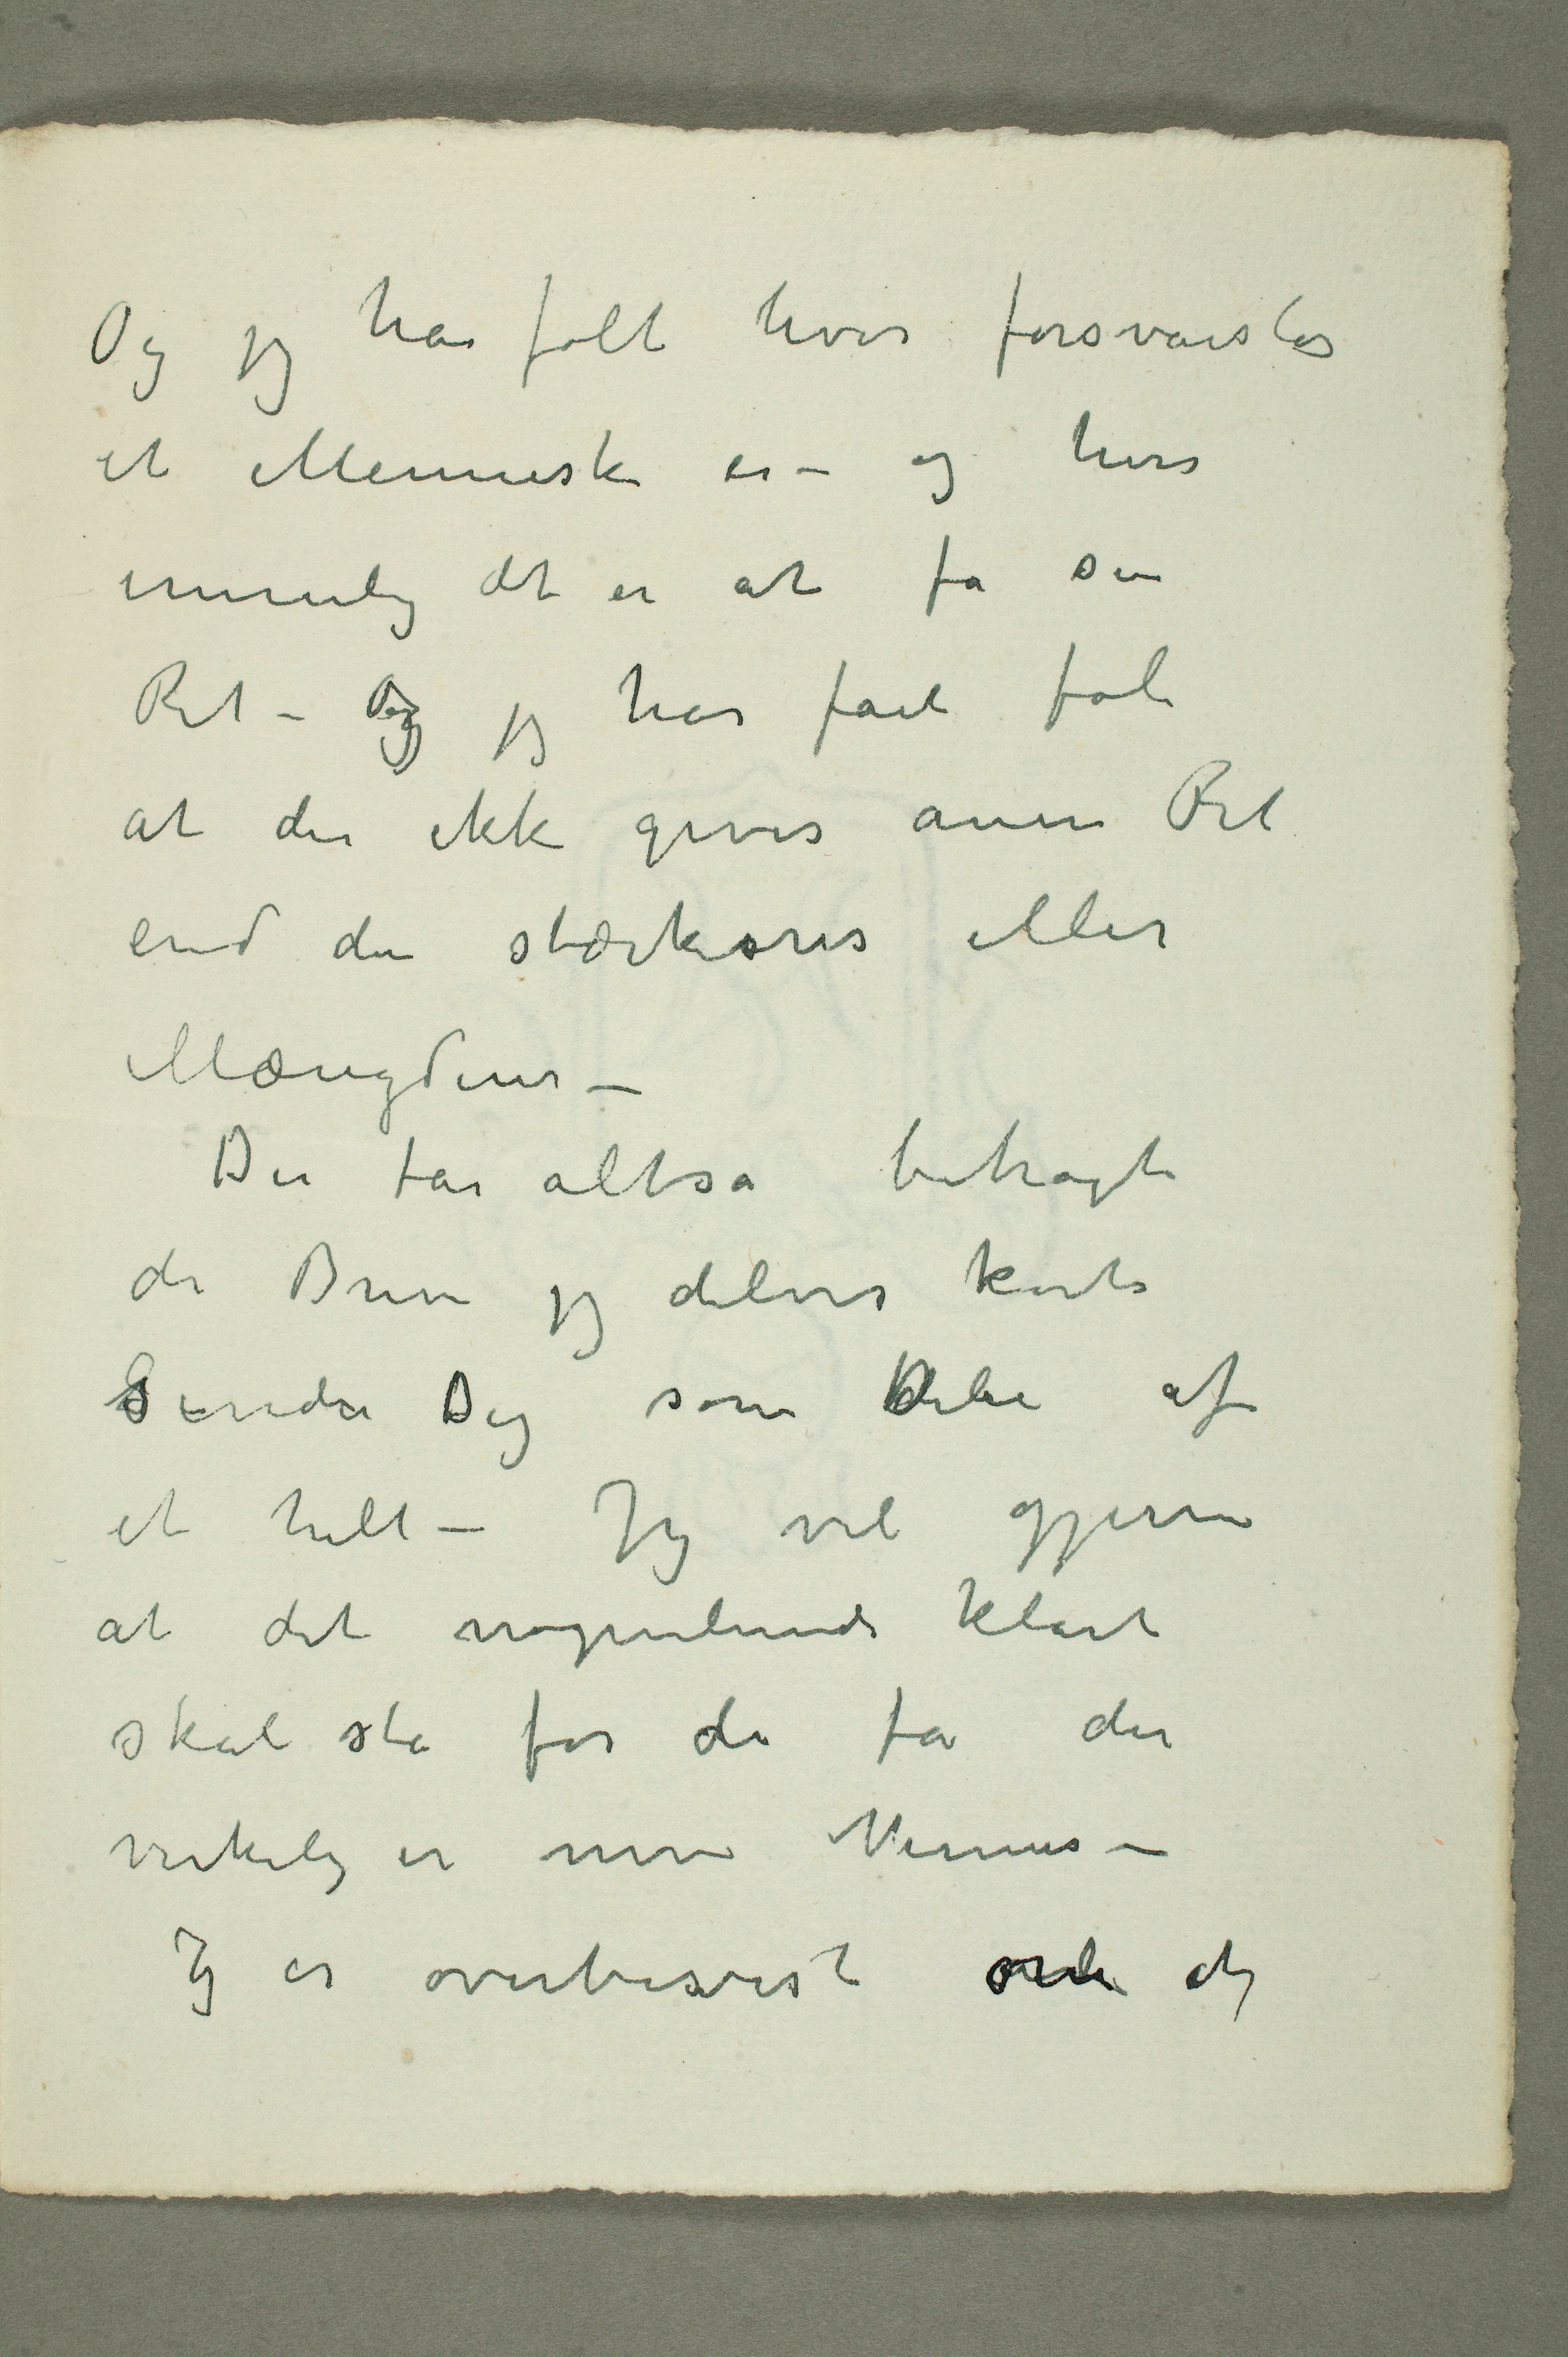 Og jeg har følt hvor forsvarsløs
et Menneske er – og hvor
umulig det er at få sin
Ret – Og jeg har fået føle
at der ikke gives anen Ret
end den stærkeres eller
Mængdens –
Du får altså betragte
de Breve jeg delvis korte
Sender Dig som Dele af
et helt – Jeg vil gjerne
at det nogenlunde klart
skal stå for de få der
virkelig er mine Venner –
Jeg er overbevist